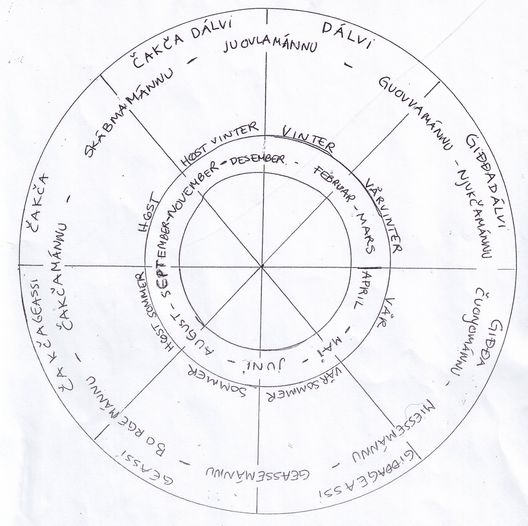 DÁLVI
GIĐĐADÁLVI
GIĐĐA
GIĐĐAGEASSI
GEASSI
ČAKČAGEASSI
ČAKČA
ČAKČA DÁLVI
JUOVLAMÁNNU -
GUOVVAMÁNNU - NJUKČAMÁNNU
CUOŊOMÁNNU -
MIESSEMÁNNU -
GEASSEMÁNNU -
BORGEMÁNNU -
ČAKČAMÁNNU -
SKÁBMAMÁNNU -
VINTER
VÅRVINTER
VÅR
VÅRSOMMER
SOMMER
HØST SOMMER
HØST
HØSTVINTER
DESEMBER -
FEBRUAR - MARS
APRIL - MAI
- JUNI -
AUGUST -
SEPTEMBER - NOVEMBER -